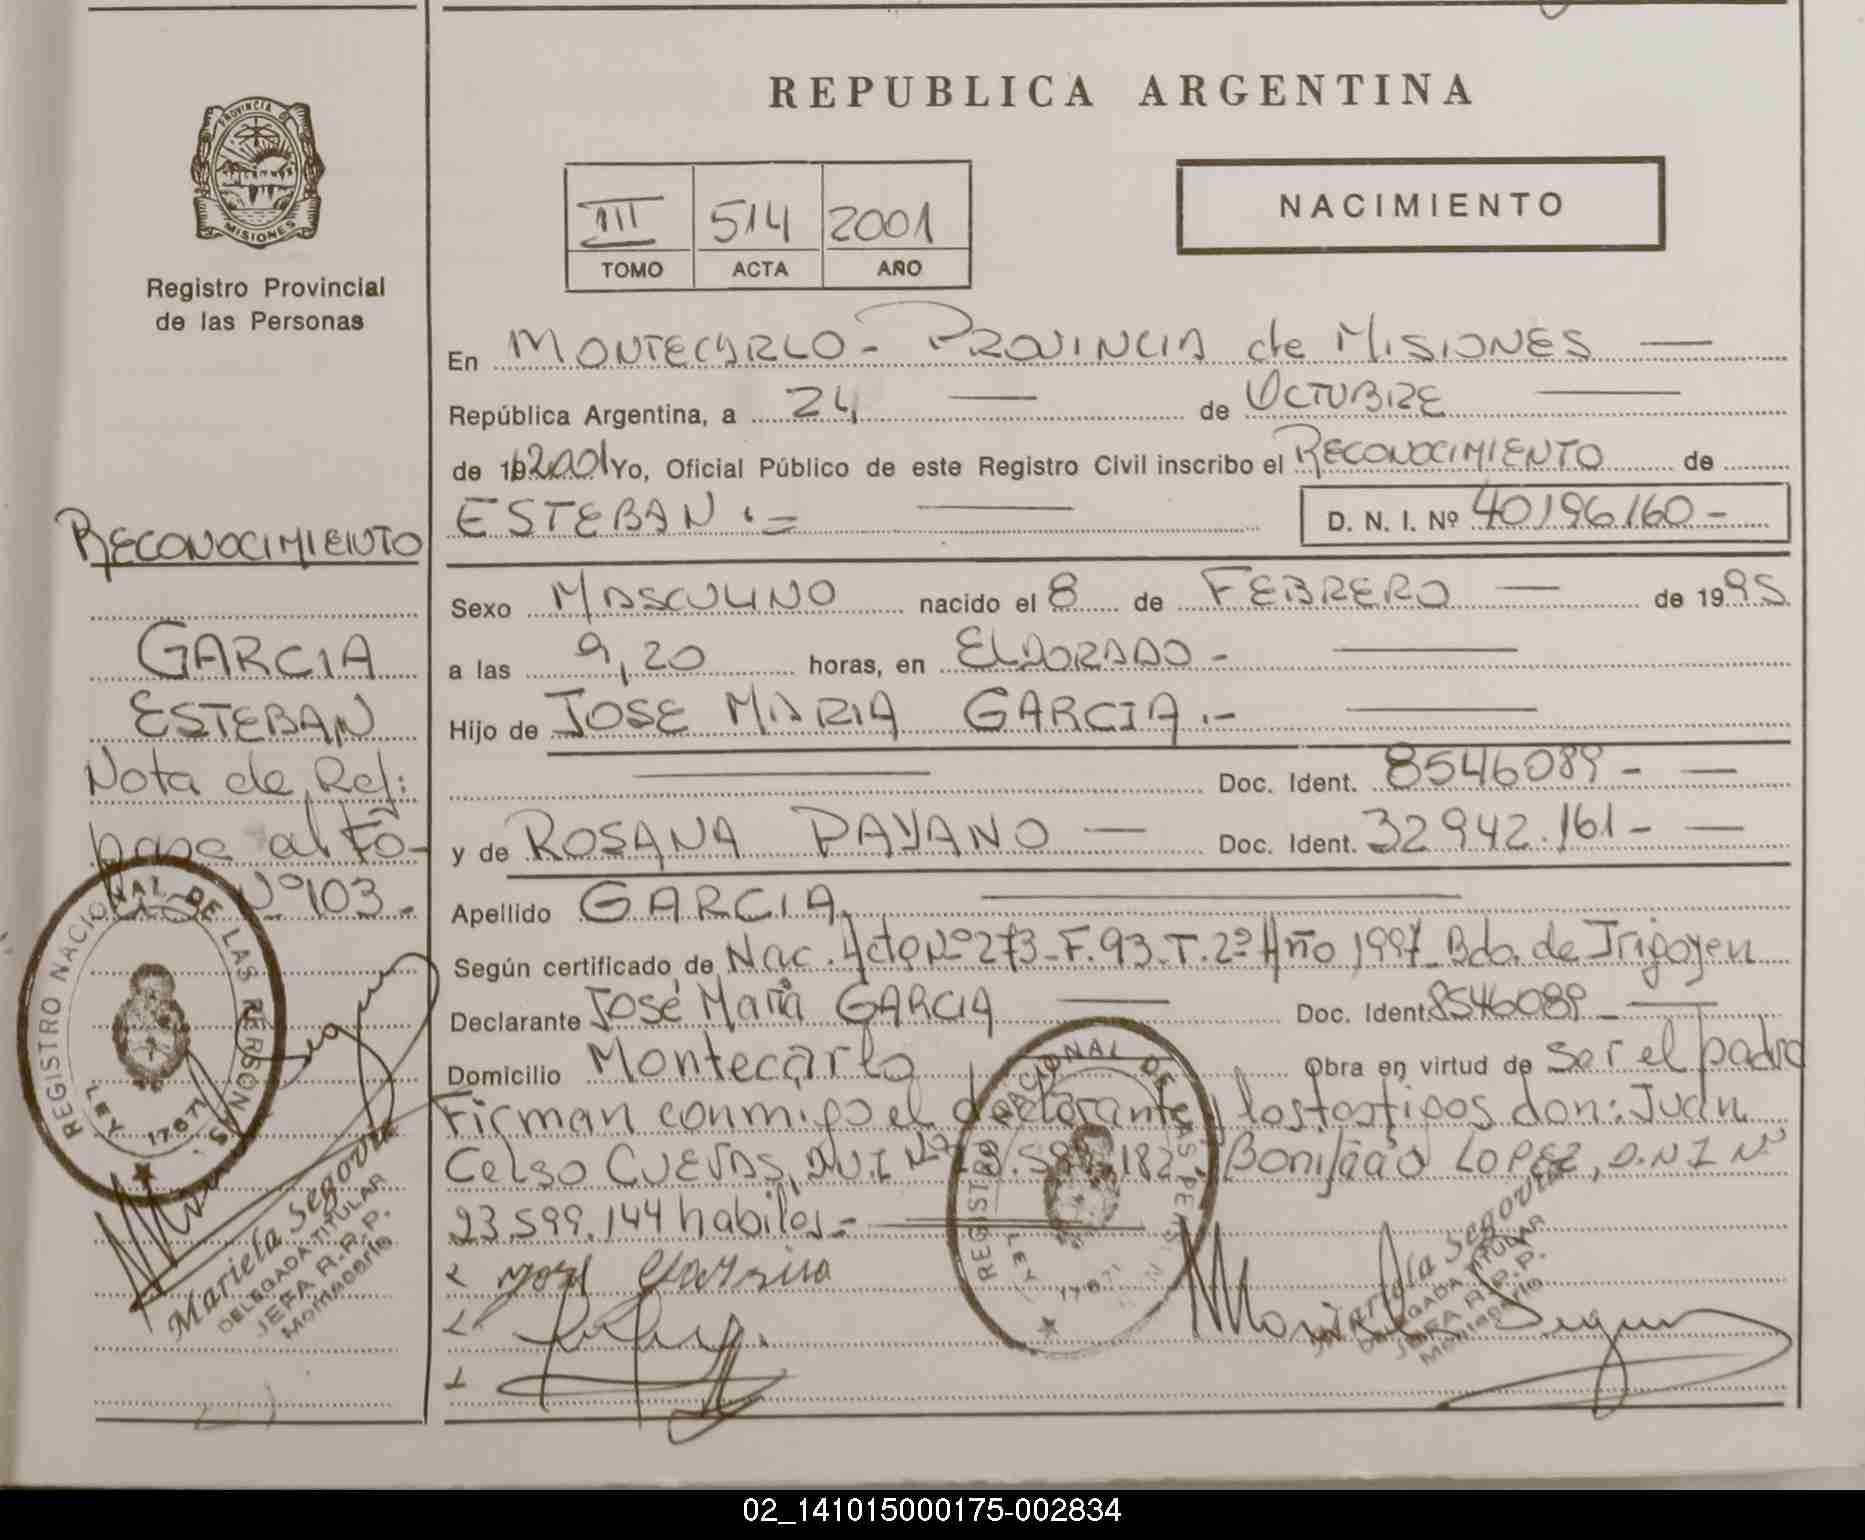 REPUBLICA ARGENTINA
PROVINCIA DE
MISIONES
Registro Provincial
de las Personas
III 514 2001
TOMO ACTA AÑO
NACIMIENTO
En MONTECARLO - PROVINCIA de MISIONES
República Argentina, a 24 de OCTUBRE
de 192001 Yo, Oficial Público de este Registro Civil inscribo el RECONOCIMIENTO de
ESTEBAN D. N. I. Nº 40196160 -
RECONOCIMIENTO
GARCIA
ESTEBAN
Nota de Ref:
pasa al Fo-
Nº 103.
Sexo MASCULINO nacido el 8 de FEBRERO de 1995
a las 9,20 horas, en ELDORADO -
Hijo de JOSE MARIA GARCIA.-
Doc. Ident. 8546089 -
y de ROSANA PAYANO Doc. Ident. 32942.161 -
Apellido GARCIA
Según certificado de Nac. Acta Nº 273 - F. 93 - T. 2º Año 1997 - Bdo. de Irigoyen
Declarante José Maria GARCIA Doc. Ident. 8546089 -
Domicilio Montecarlo Obra en virtud de ser el padre
Firman conmigo el declarante, los testigos don: Juan
Celso CUEVAS, D.N.I Nº 182 Bonifacio LOPEZ, D.N.I Nº
23.599.144 habiles.-
REGISTRO NACIONAL DE LAS PERSONAS
LEY 17671
Mariela Segovia
DELEGADA TITULAR
JEFA R.R.P.
REGISTRO NACIONAL DE LAS PERS
LEY 17671
Mariela Segovia
DELEGADA TITULAR
JEFA R.R.P.
02_141015000175-002834